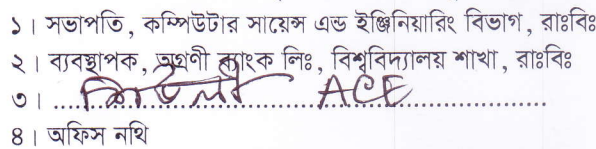 ১। সভাপতি, কম্পিউটার সায়েন্স এন্ড ইঞ্জিনিয়ারিং বিভাগ, রাঃবিঃ
২। ব্যবস্থাপক, অগ্রণী ব্যাংক লিঃ, বিশ্ববিদ্যালয় শাখা, রাঃবিঃ
৩। ACE
৪। অফিস নথি